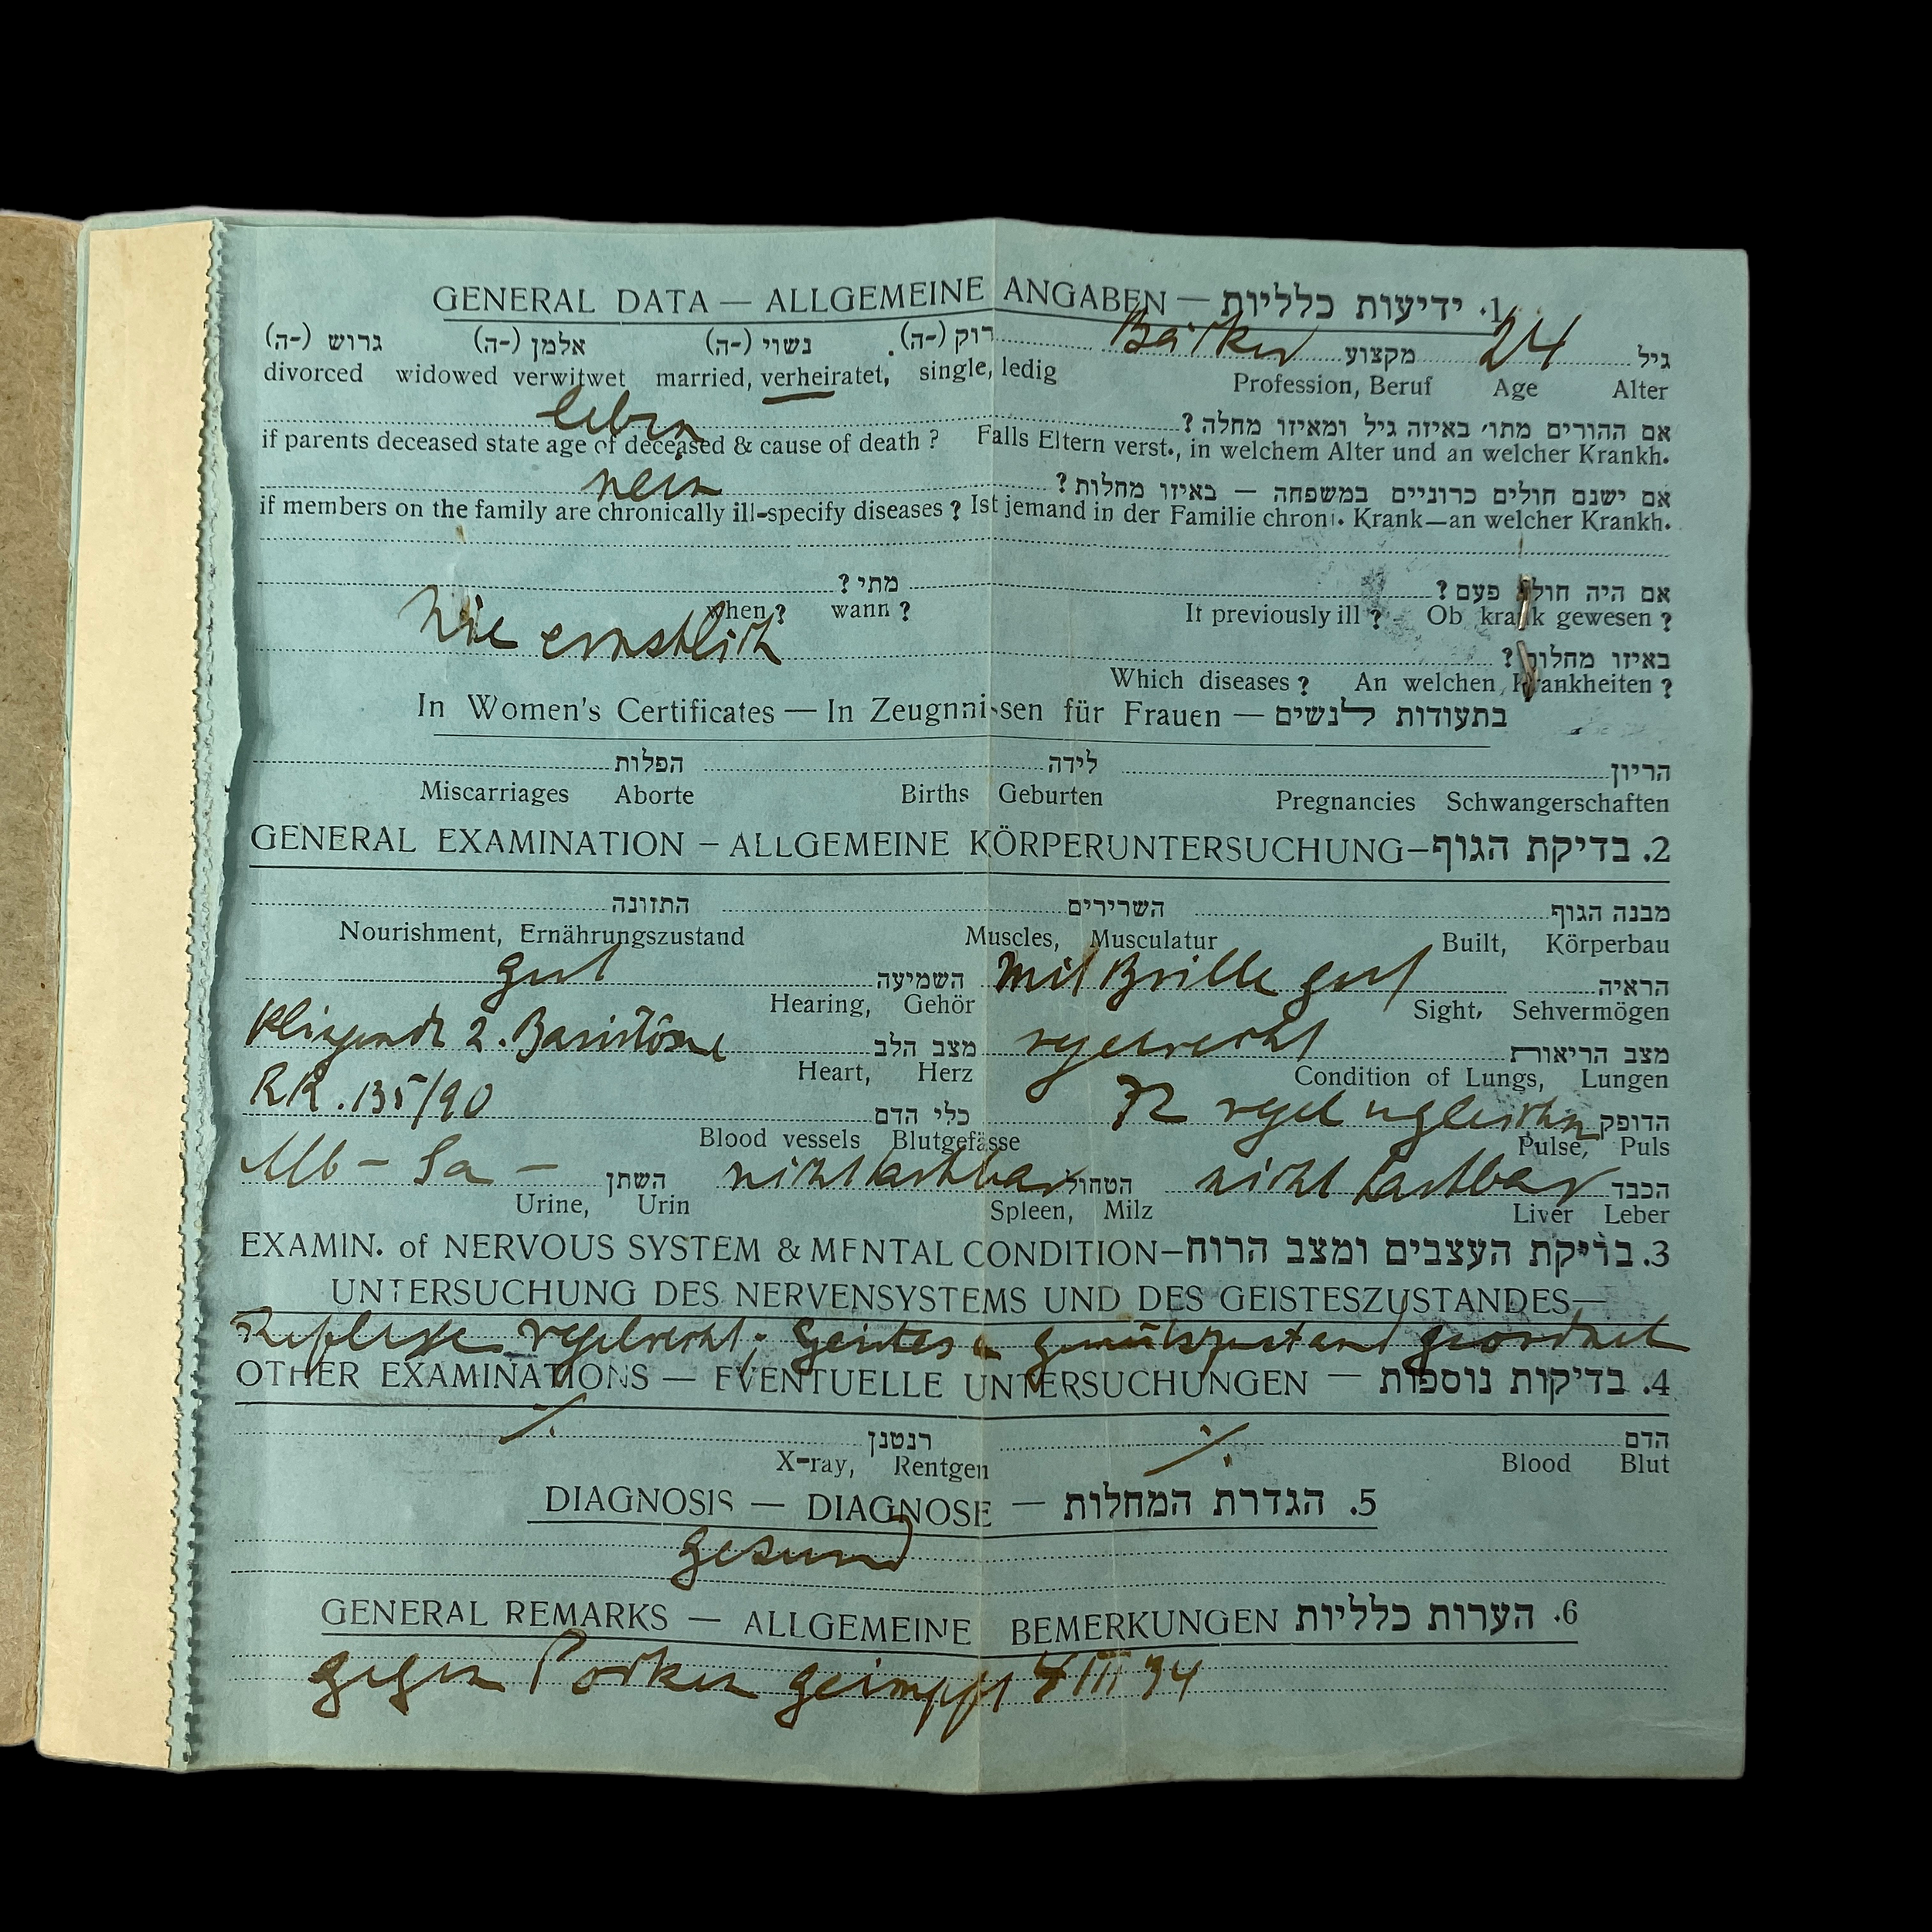 GENERAL DATA — ALLGEMEINE ANGABEN — 1. ידיעות כלליות
גיל 24 מקצוע Bäcker רוק (-ה). נשוי (-ה) אלמן (-ה) גרוש (-ה)
divorced widowed verwitwet married, verheiratet, single, ledig Profession, Beruf Age Alter
אם ההורים מתו׳ באיזה גיל ומאיזו מחלה? leben
if parents deceased state age of deceased & cause of death ? Falls Eltern verst., in welchem Alter und an welcher Krankh.
אם ישנם חולים כרוניים במשפחה — באיזו מחלות? nein
if members on the family are chronically ill-specify diseases ? Ist jemand in der Familie chroni. Krank—an welcher Krankh.
אם היה חולה פעם? מתי?
when ? wann ? It previously ill ? Ob krank gewesen ?
באיזו מחלות? Nie ernstlich
Which diseases ? An welchen, Krankheiten ?
In Women's Certificates — In Zeugnnissen für Frauen — בתעודות לנשים
הריון לידה הפלות
Miscarriages Aborte Births Geburten Pregnancies Schwangerschaften
GENERAL EXAMINATION – ALLGEMEINE KÖRPERUNTERSUCHUNG–2. בדיקת הגוף
מבנה הגוף השרירים התזונה
Nourishment, Ernährungszustand Muscles, Musculatur Built, Körperbau
הראיה mit Brille gut השמיעה gut
Hearing, Gehör Sight, Sehvermögen
מצב הריאות regelrecht מצב הלב 2.
Heart, Herz Condition of Lungs, Lungen
הדופק 72 כלי הדם RR. 135/90
Blood vessels Blutgefässe Pulse, Puls
הכבד nicht tastbar הטחול nicht tastbar השתן Alb – Sa –
Urine, Urin Spleen, Milz Liver Leber
EXAMIN. of NERVOUS SYSTEM & MENTAL CONDITION–3. בדיקת העצבים ומצב הרוח
UNTERSUCHUNG DES NERVENSYSTEMS UND DES GEISTESZUSTANDES—
Reflexe regelrecht; Geistes u Gemütszustand geordnet
OTHER EXAMINATIONS — EVENTUELLE UNTERSUCHUNGEN — 4. בדיקות נוספות
הדם ·/. רנטגן ·/.
X-ray, Rentgen Blood Blut
DIAGNOSIS — DIAGNOSE — 5. הגדרת המחלות
gesund
GENERAL REMARKS — ALLGEMEINE BEMERKUNGEN 6. הערות כלליות
gegen Pocken geimpft III 34